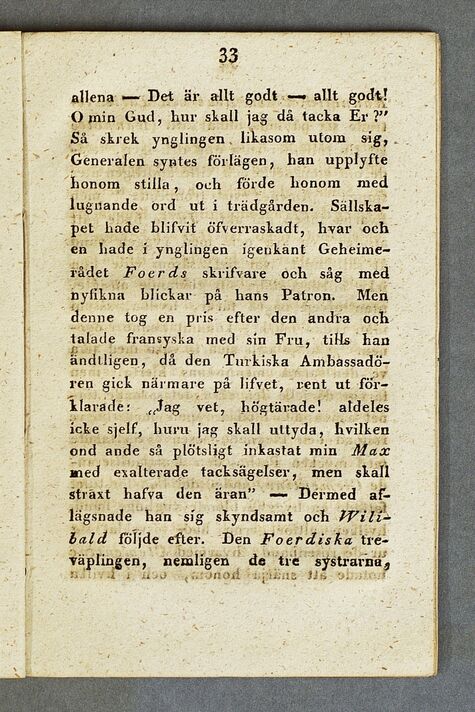 33
allena — Det är allt godt — allt godt!
O min Gud, hur skall jag då tacka Er?”
Så skrek ynglingen likasom utom sig,
Generalen syntes förlägen, han upplyfte
honom stilla, och förde honom med
lugnande ord ut i trädgården. Sällska-
pet hade blifvit öfverraskadt, hvar och
en hade i ynglingen igenkänt Geheime-
rådet Foerds skrifvare och såg med
nyfikna blickar på hans Patron. Men
denne tog en pris efter den andra och
talade fransyska med sin Fru, tills han
ändtligen, då den Turkiska Ambassadö-
ren gick närmare på lifvet, rent ut för-
klarade: „Jag vet, högtärade! aldeles
icke sjelf, huru jag skall uttyda, hvilken
ond ande så plötsligt inkastat min Max
med exalterade tacksägelser, men skall
straxt hafva den äran” — Dermed af-
lägsnade han sig skyndsamt och Wili-
bald följde efter. Den Foerdiska tre-
väplingen, nemligen de tre systrarna,